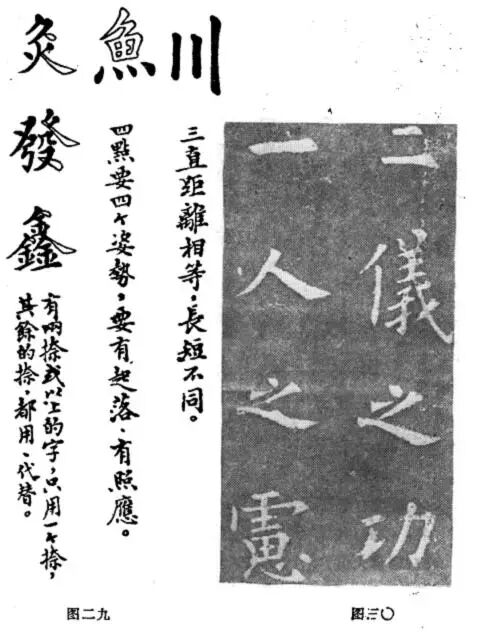 川
三直距離相等，長短不同。
魚
四點要四个姿勢，要有起落、有照應。
灸
發
鑫
有兩捺或以上的字，只用一个捺，
其餘的捺，都用、代替。
二儀之功
一人之
圖二九
圖三〇